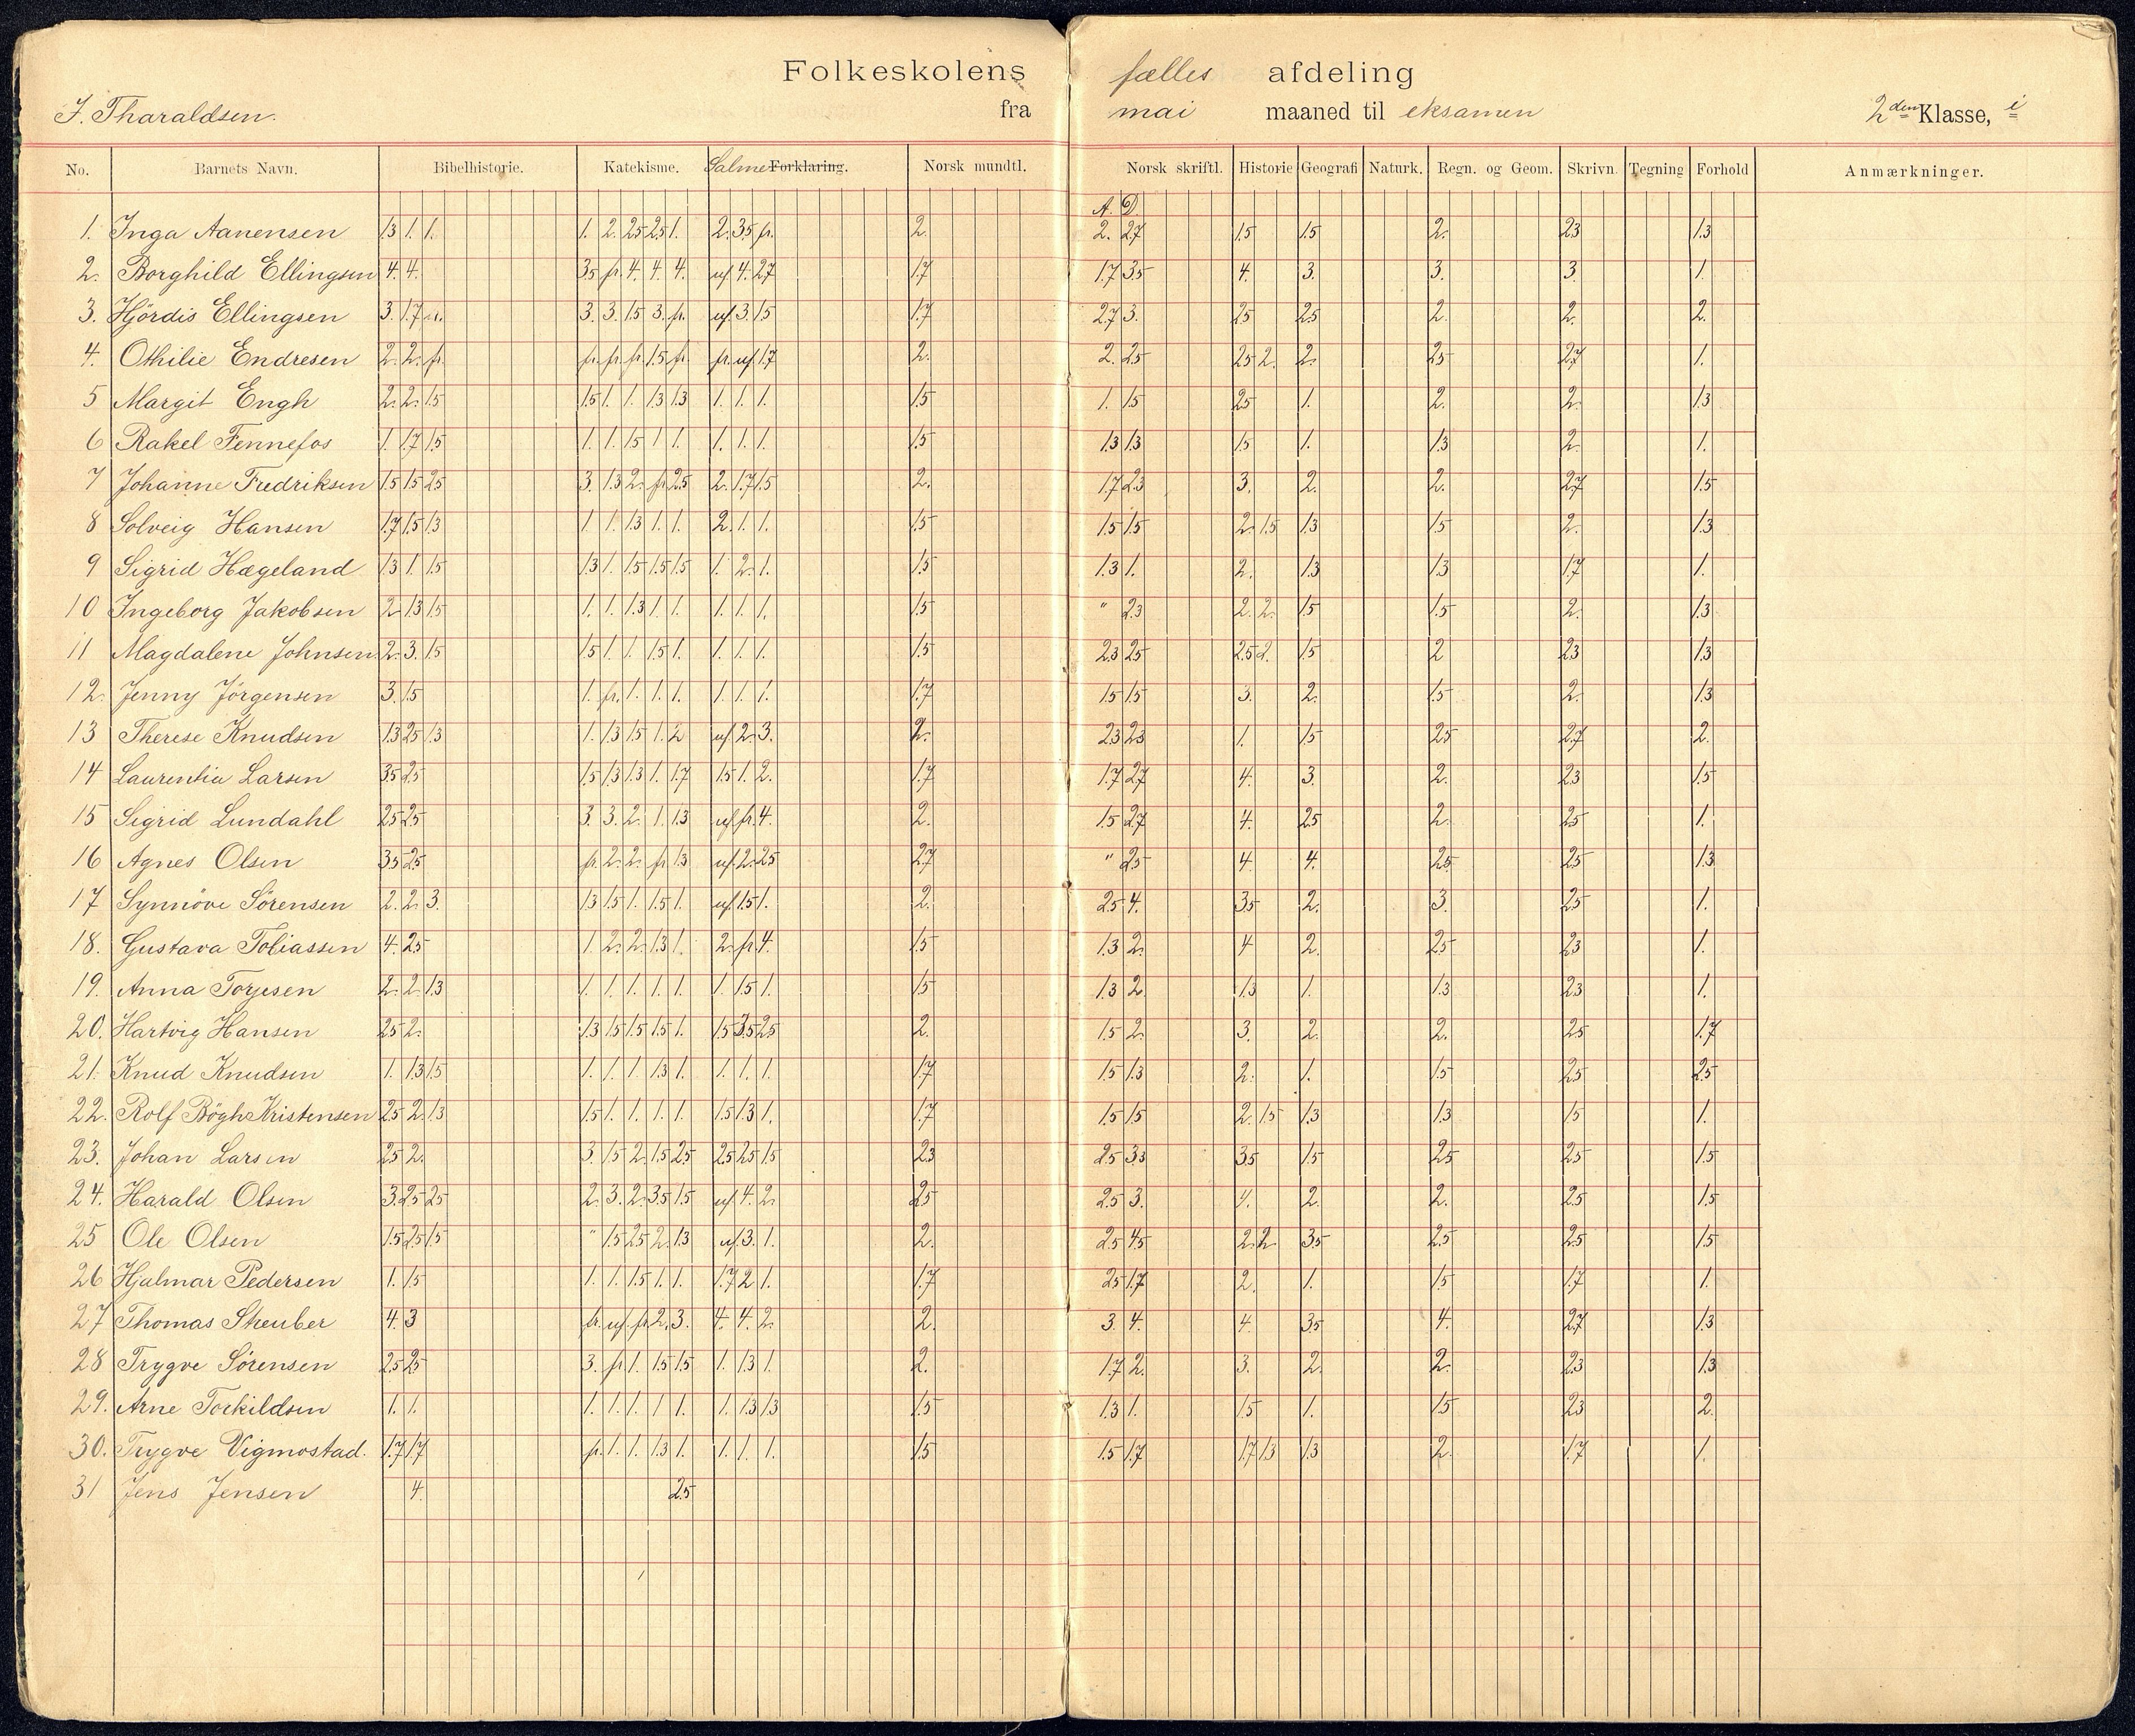 Folkeskolens fælles afdeling
J. Tharaldsen. fra mai maaned til eksamen 2den Klasse, i
No. Barnets Navn. Bibelhistorie. Katekisme. Salme Forklaring. Norsk mundtl. Norsk skriftl. Historie Geografi Naturk. Regn. og Geom. Skrivn. Tegning Forhold Anmærkninger.
A. D.
1. Inga Aanensen 1.3 1. 1. 1. 2. 2.5 2.5 1. 2. 3.5 fr. 2. 2. 2.7 1.5 1.5 2. 2.3 1.3
2. Borghild Ellingsen 4. 4. 3.5 fr. 4. 4. 4. uf 4. 2.7 1.7 1.7 3.5 4. 3. 3. 3. 1.
3. Hjördis Ellingsen 3. 1.7 3. 3. 1.5 3. fr. uf. 3. 1.5 1.7 2.7 3. 2.5 2.5 2. 2. 2.
4. Othilie Endresen 2. 2. fr. fr. fr. fr. 1.5 fr. fr. uf 1.7 2. 2. 2.5 2.5 2. 2. 2.5 2.7 1.
5 Margit Engh 2. 2. 1.5 1.5 1. 1. 1.3 1.3 1. 1. 1. 1.5 1. 1.5 2.5 1. 2. 2. 1.3
6 Rakel Fennefos 1. 1.7 1.5 1. 1. 1.5 1 1. 1. 1. 1. 1.5 1.3 1.3 1.5 1. 1.3 2. 1.
7 Johanne Fredriksen 1.5 1.5 2.5 3. 1.3 2. fr 2.5 2. 1.7 1.5 2. 1.7 2.3 3. 2. 2. 2.7 1.5
8 Solveig Hansen 1.7 1.5 1.3 1 1. 1.3 1. 1. 2. 1. 1. 1.5 1.5 1.5 2. 1.5 1.3 1.5 2. 1.3
9 Sigrid Hægeland 1.3 1. 1.5 1.3 1. 1.5 1.5 1.5 1. 2. 1. 1.5 1.3 1. 2. 1.3 1.3 1.7 1.
10 Ingeborg Jakobsen 2. 1.3 1.5 1. 1. 1.3 1. 1. 1. 1. 1. 1.5 " 2.3 2. 2. 1.5 1.5 2. 1.3
11 Magdalene Johnsen 2. 3. 1.5 1.5 1. 1. 1.5 1. 1. 1. 1. 1.5 2.3 2.5 2.5 2. 1.5 2 2.3 1.3
12. Jenny Jörgensen 3. 1.5 1. fr. 1. 1. 1. 1. 1. 1. 1.7 1.5 1.5 3. 2. 1.5 2. 1.3
13 Therese Knudsen 1.3 2.5 1.3 1. 1.3 1.5 1. 2 uf. 2. 3. 2. 2.3 2.3 1. 1.5 2.5 2.7 2.
14 Laurentia Larsen 3.5 2.5 1.5 1.3 1.3 1. 1.7 1.5 1. 2. 1.7 1.7 2.7 4. 3. 2. 2.3 1.5
15 Sigrid Lundahl 2.5 2.5 3. 3. 2. 1. 1.3 uf fr. 4. 2. 1.5 2.7 4. 2.5 2. 2.5 1.
16 Agnes Olsen 3.5 2.5 fr. 2. 2. fr 1.3 uf. 2. 2.5 2.7 " 2.5 4. 4. 2.5 2.5 1.3
17 Synnöve Sörensen 2. 2. 3. 1.3 1.5 1. 1.5 1. uf 1.5 1. 2. 2.5 4. 3.5 2. 3. 2.5 1.
18. Gustava Tobiassen 4. 2.5 1. 2. 2. 1.3 1. 2. fr. 4. 1.5 1.3 2. 4 2. 2.5 2.3 1.
19. Anna Torjesen 2. 2. 1.3 1. 1. 1. 1. 1. 1. 1.5 1. 1.5 1.3 2. 1.3 1. 1.3 2.3 1.
20. Hartvig Hansen 2.5 2. 1.3 1.5 1.5 1.5 1. 1.5 3.5 2.5 2. 1.5 2. 3. 2. 2. 2.5 1.7
21. Knud Knudsen 1. 1.3 1.5 1. 1. 1 1.3 1. 1. 1. 1. 1.7 1.5 1.3 2. 1. 1.5 2.5 2.5
22. Rolf Bögh Kristensen 2.5 2. 1.3 1.5 1. 1. 1. 1. 1.5 1.3 1. 1.7 1.5 1.5 2. 1.5 1.3 1.3 1.5 1.
23. Johan Larsen 2.5 2. 3. 1.5 2. 1.5 2.5 2.5 2.5 1.5 2.3 2.5 3.3 3.5 1.5 2.5 2.5 1.5
24. Harald Olsen 3. 2.5 2.5 2. 3. 2. 3.5 1.5 uf. 4. 2. 2.5 2.5 3. 4. 2. 2. 2.5 1.5
25 Ole Olsen 1.5 2.5 1.5 " 1.5 2.5 2. 1.3 uf. 3. 1. 2. 2.5 4.5 2. 2. 3.5 2.5 2.5 1.5
26 Hjalmar Pedersen 1. 1.5 1. 1. 1.5 1. 1. 1.7 2. 1. 1.7 2.5 1.7 2. 1. 1.5 1.7 1.
27 Thomas Steuber 4. 3 fr. uf. fr. 2. 3. 4. 4. 2. 2. 3. 4. 4. 3.5 4. 2.7 1.3
28 Trygve Sörensen 2.5 2.5 3. fr 1. 1.5 1.5 1. 1.3 1. 2. 1.7 2. 3. 2. 2. 2.3 1.3
29. Arne Torkildsen 1. 1. 1. 1. 1. 1 1. 1. 1.3 1.3 1.5 1.3 1. 1.5 1. 1.5 2.3 2.
30. Trygve Vigmostad. 1.7 1.7 fr. 1. 1. 1.3 1. 1. 1. 1. 1.5 1.5 1.7 1.7 1.3 1.3 2. 1.7 1.
31 Jens Jensen 4. 2.5